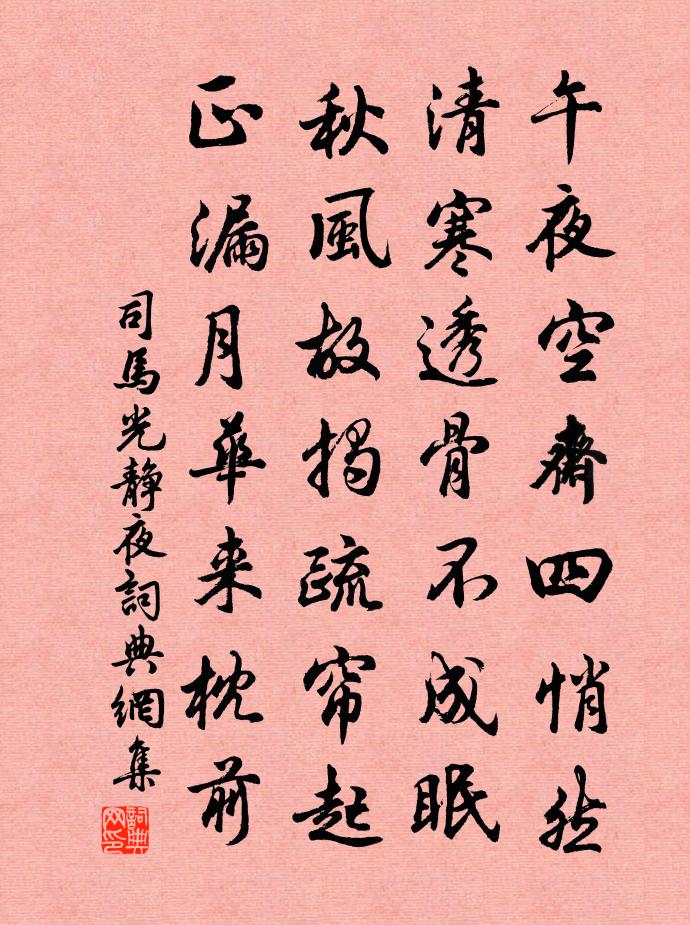 午夜空齋四悄然
清寒透骨不成眠
秋風故揭疏帘起
正漏月華来枕前
司馬光静夜詞典網集
詞典
网印